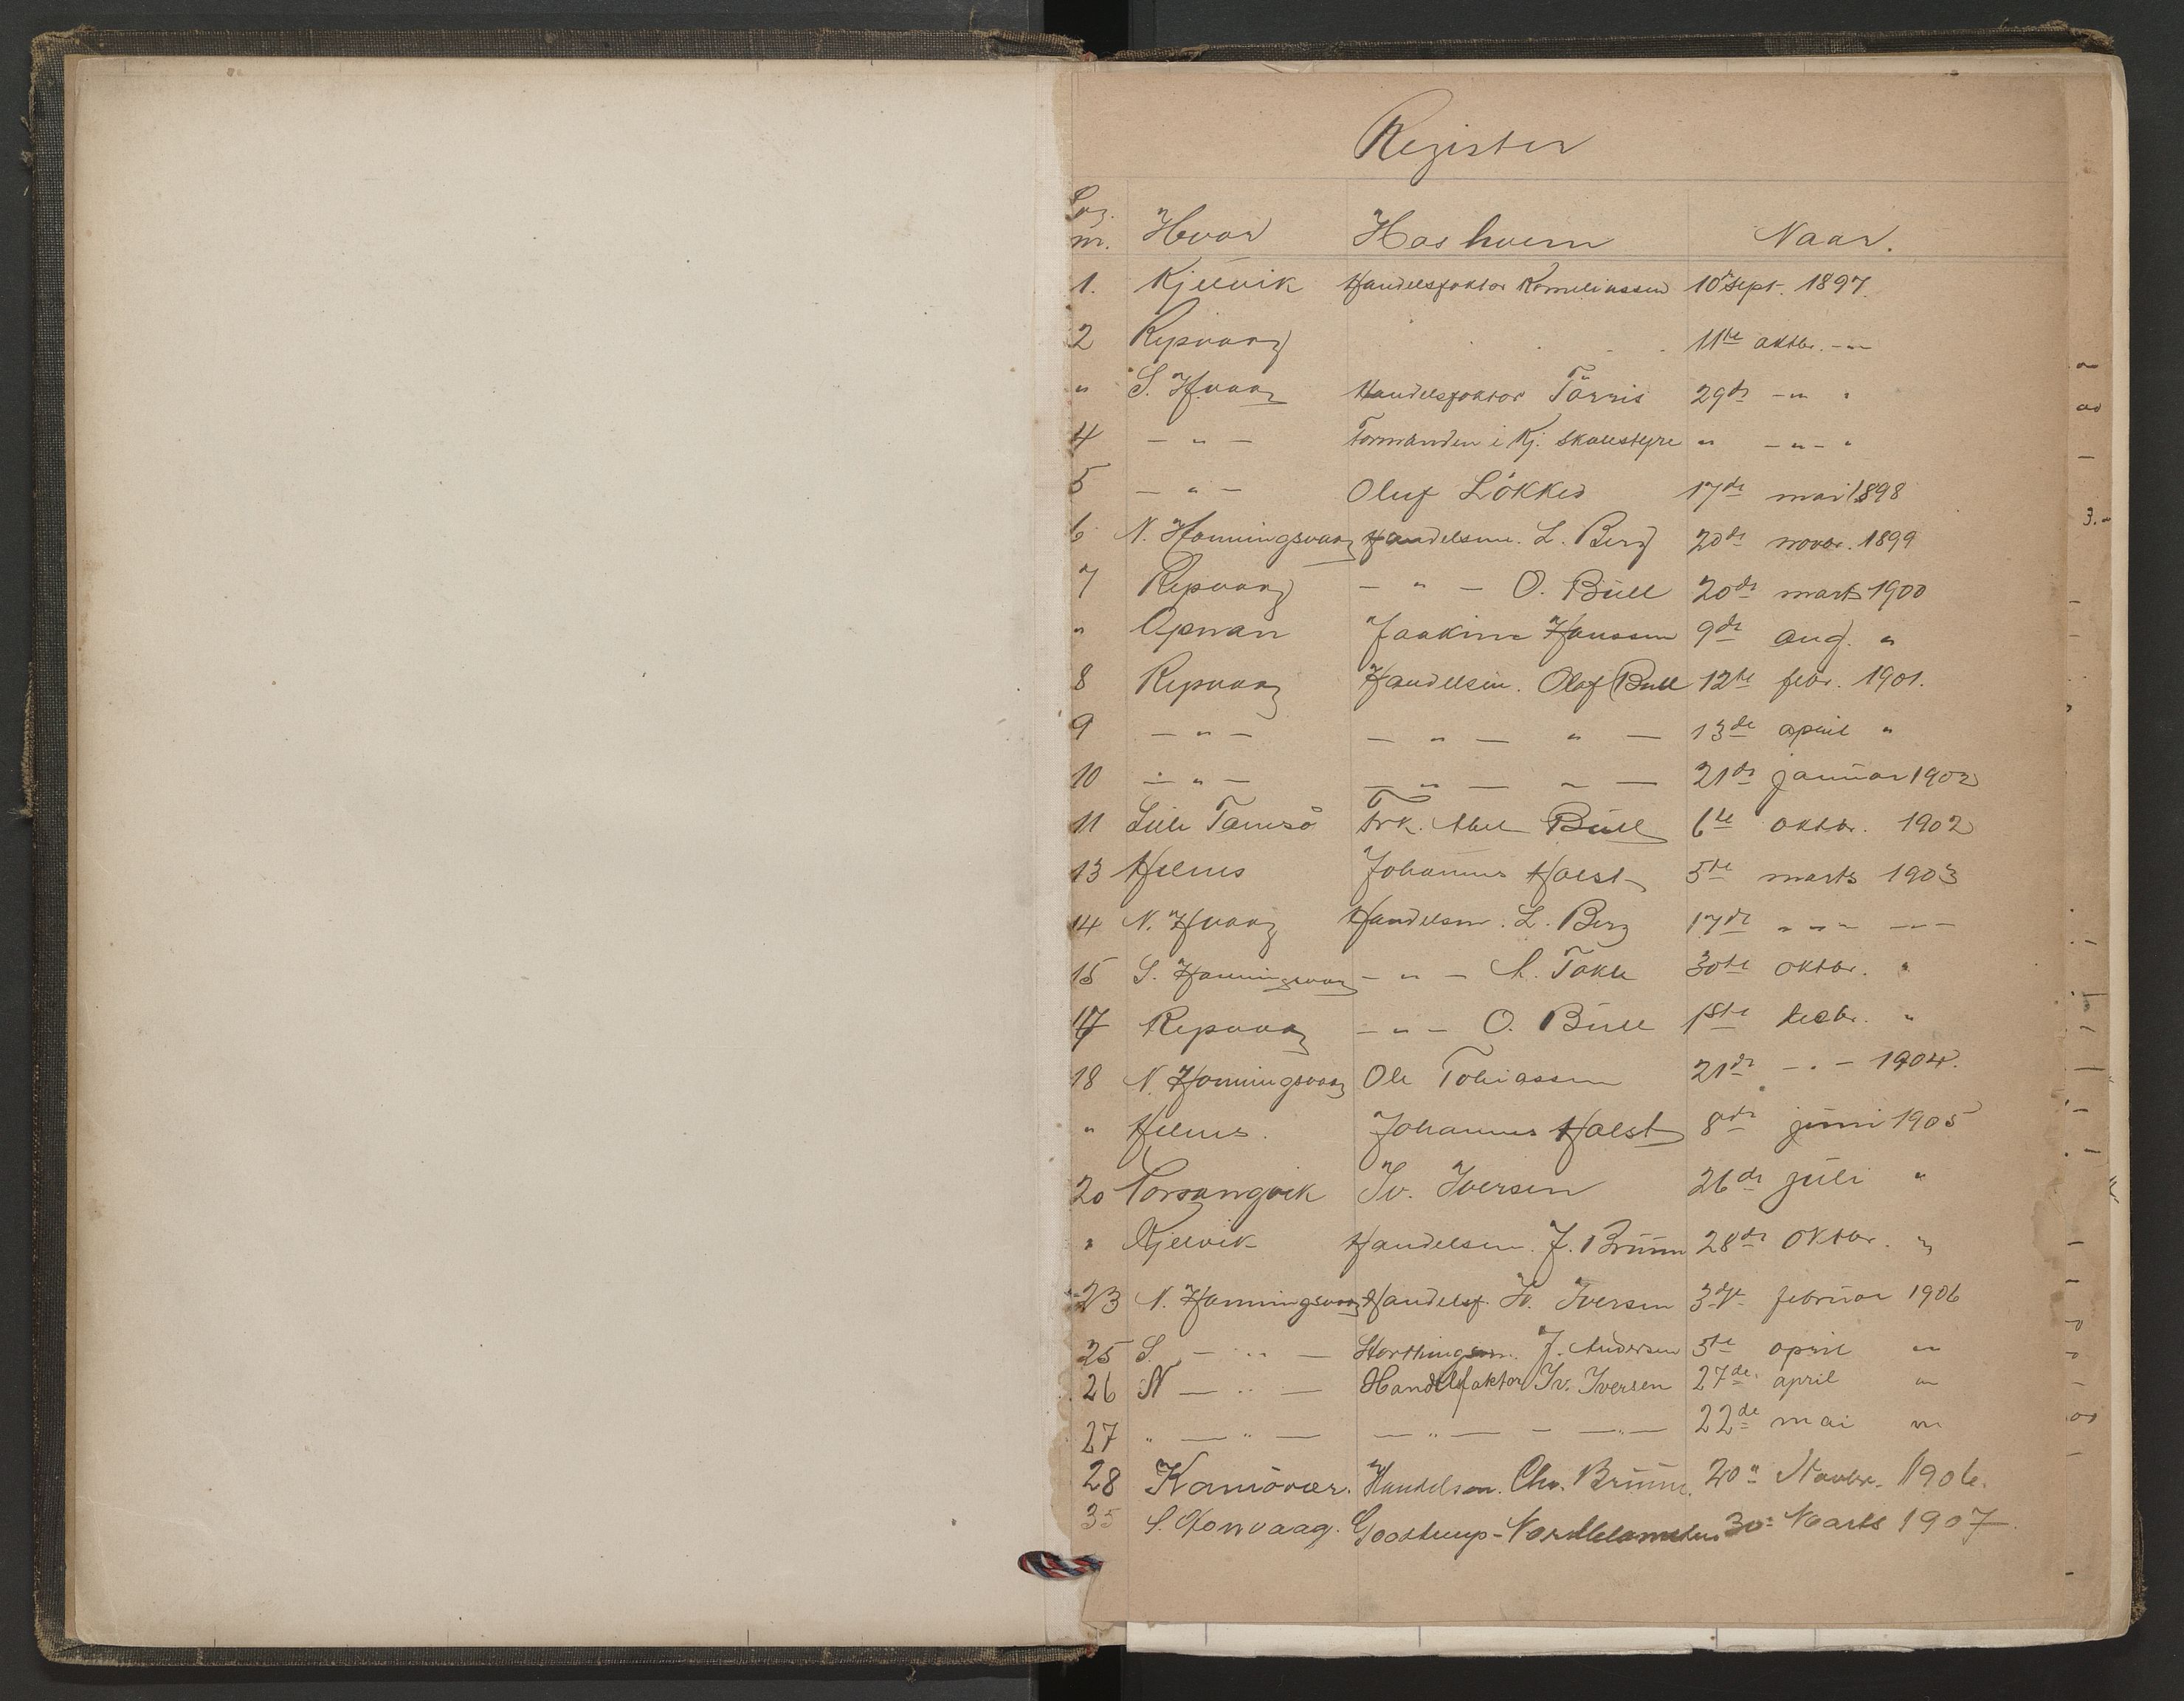 Register
Pag. nr. Hvor Hos hvem Naar.
1. Kjelvik Handelsfaktor Korneliussen 10de sept. 1897.
2 Repvaag 11te oktbr. -"-
" S. H.vaag Handelsfaktor Tørris 29de -"- "
4 - " - Formanden i Kj. skolestyre " -"- "
5 - " - Oluf Løkke 17de mai 1898
6 N. Honningsvaag Handelsm. L. Berg 20de novbr. 1899
7 Repvaag - " - O. Bull 20de marts 1900
" Opnan Joakim Hanssen 9de aug. "
8 Repvaag Handelsm. Olaf Bull 12te febr. 1901.
9 - " - - " - " - 13de april "
10 - " - - " - " - 21de januar 1902
11 Lille Tamsø Frk. Bull 6te oktbr. 1902
13 Helnes Johannes Holst 5te marts 1903
14 N. H.vaag Handelsm. L. Berg 17de - " - - " -
15 S. Honningsvaag - " - 30te oktbr. "
17 Repvaag - " - O. Bull 1ste decbr. "
18 N. Honningsvaag Ole Tobiassen 21de - " - 1904.
" Helnes. Johannes Holst 8de juni 1905
20 Porsangvik Iv. Iversen 26de juli "
" Kjelvik Handelsm. J. Bruun 28de oktbr. "
23 N. Honningsvaag Handelsf. Iv. Iversen 3dje februar 1906
25 S. - " - Storthingsm. J. Andersen 5te april "
26 N - " - Handelsfaktor Iv. Iversen 27de april "
27 " - " - - " - - " - 22de mai "
28 Kamøvær. Handelsm. Chr. Bruun. 20" Novbr. 1906.
35 S. Honvaag. 30: Marts 1907.